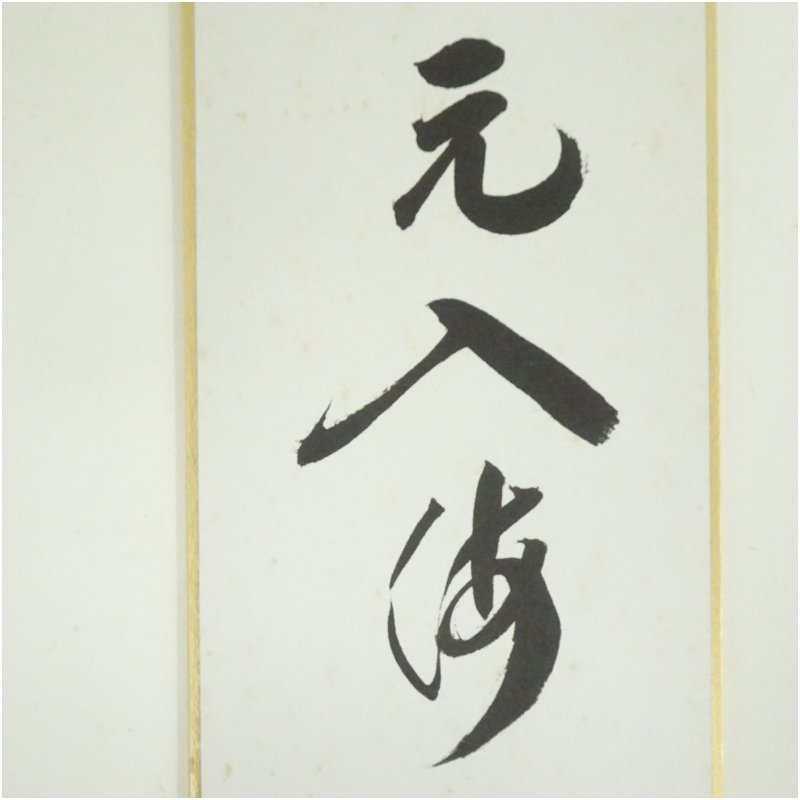 元入海